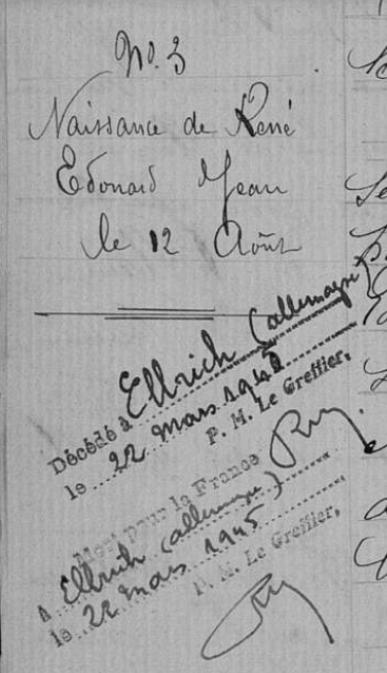 No. 3
Naissance de René
Edouard Jean
le 12 Août
Décédé à Ellrich (allemagne)
le 22 mars 1945
P. M. Le Greffier,
Mort pour la France
A Ellrich (allemagne)
le 22 mars 1945
P. M. Le Greffier,